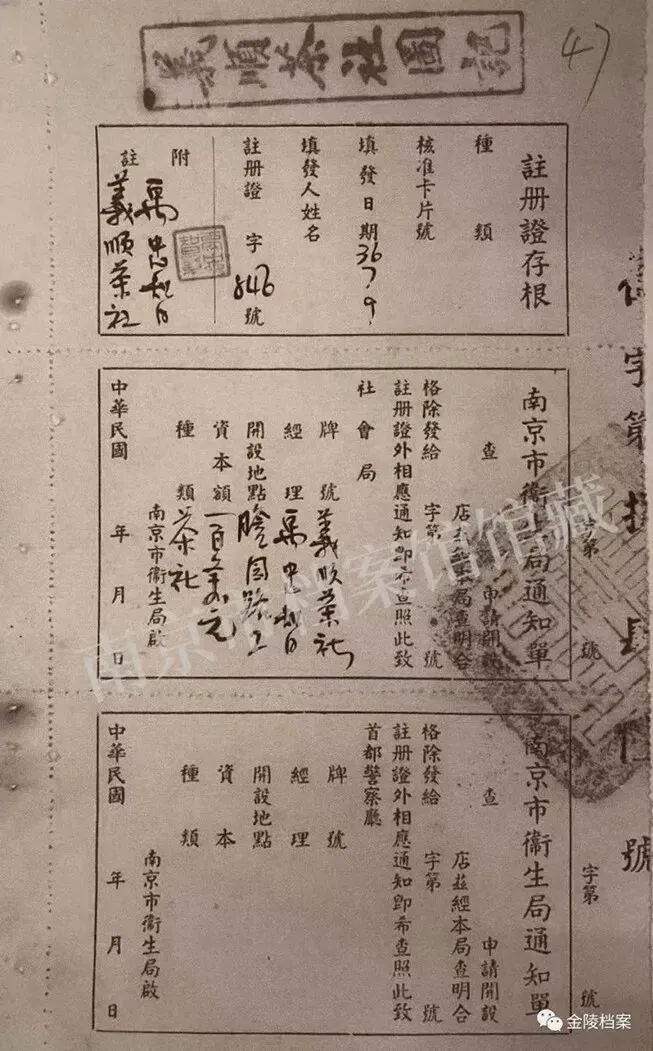 義順茶社圖記
47
註册證存根
種類
核准卡片號
填發日期 36 7 9
填發人姓名
註册證 字 846 號
附註
義順茶社
字第 號
南京市衞生局通知單
查 申請開設
店茲經本局查明合
格除發給 字第 號
註册證外相應通知即希查照此致
社會局
牌號 義順茶社
經理
開設地點 瞻園路
資本額 一百萬元
種類 茶社
南京市衞生局啟
中華民國 年 月 日
字第 號
南京市衞生局通知單
查 申請開設
店茲經本局查明合
格除發給 字第 號
註册證外相應通知即希查照此致
首都警察廳
牌號
經理
開設地點
資本
種類
南京市衞生局啟
中華民國 年 月 日
南京市档案馆馆藏
金陵档案